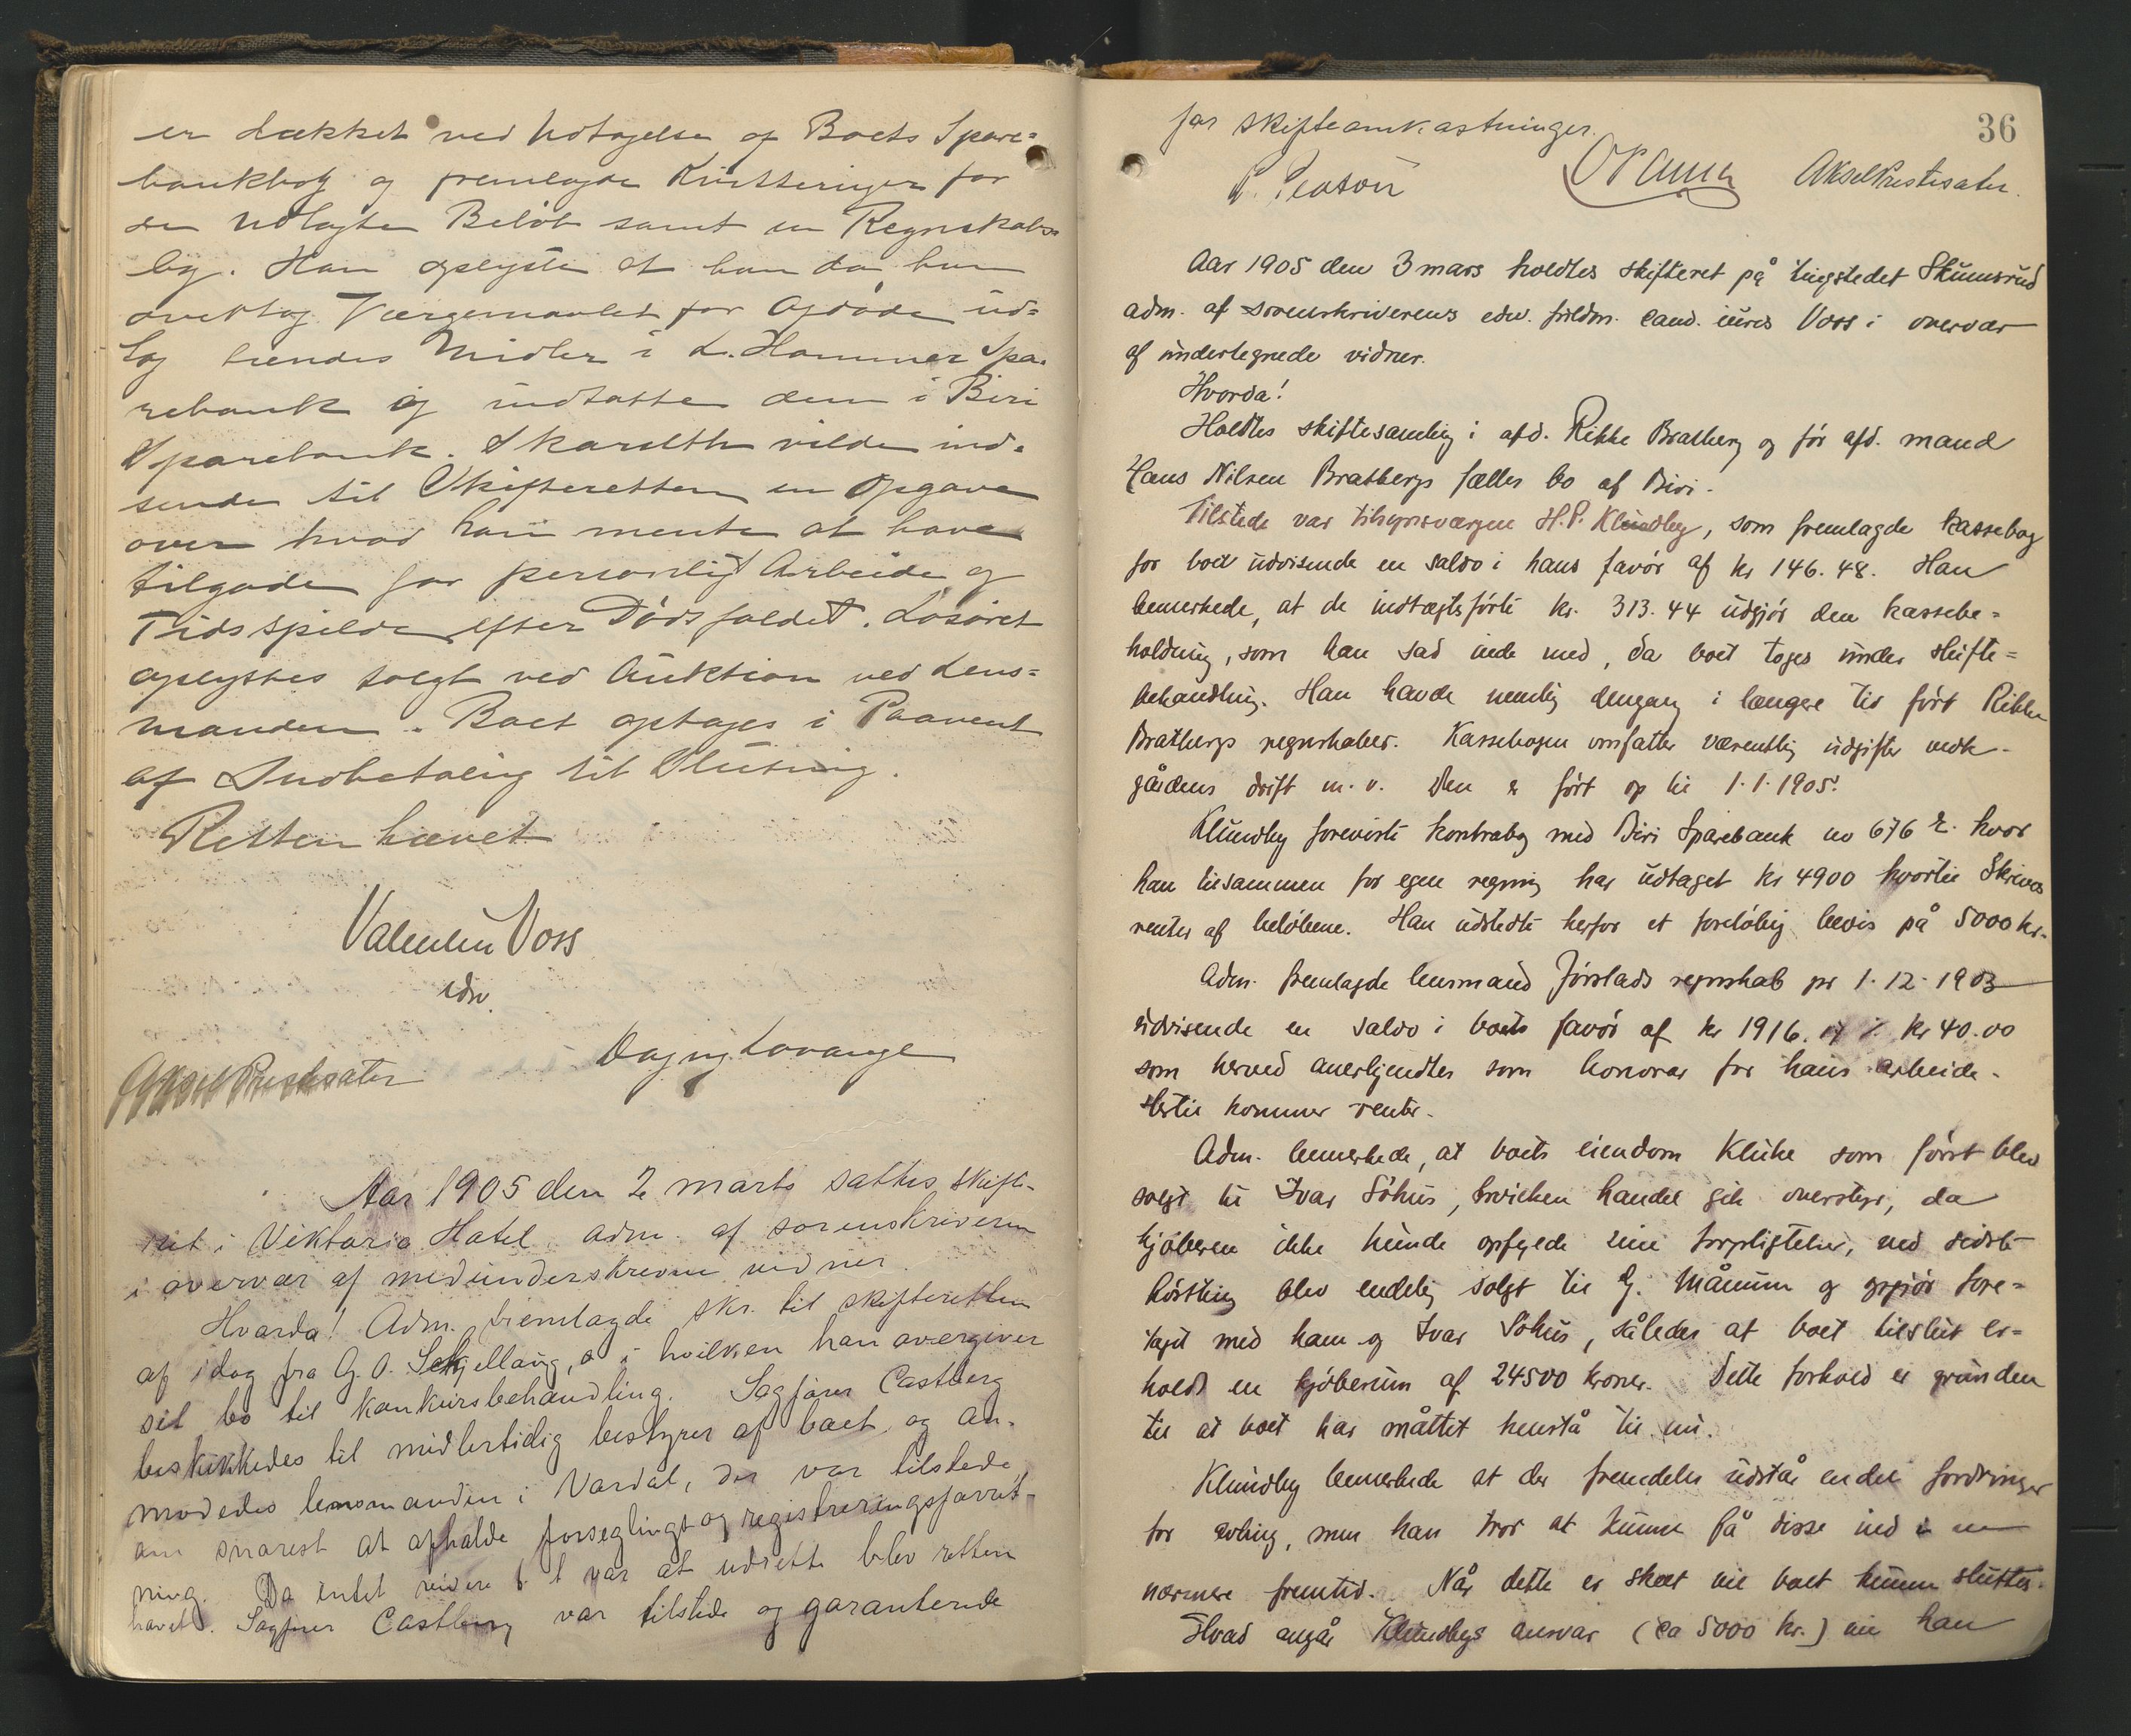 er dækket ved Udtagelse af Boets Spare=
bankbog og fremlagde Kvitteringer for
de udlagte Beløb samt en Regnskabs
bog. Han oplyste at han da han
overtog Værgemaalet for Afdøde ud=
tog hendes Midler i L. Hammer Spa=
rebank og indsatte dem i Biri
Sparebank. Skaralth vilde ind=
sende til Skifteretten en Opgave
over hvad han mente at have
tilgode for personligt Arbeide og
Tidsspilde efter Dødsfaldet. Løsøret
oplystes solgt ved Auktion ved Lens=
manden. Boet optages i Paavent
af Indbetaling til Slutning.
Retten hævet
Valentin Voss
edv.
Dagny Lovange
Aksel Prestesater
Aar 1905 den 2 marts sattes skifte-
ret i Viktoria Hotel adm. af sorenskriveren
i overvær af medunderskrevne vidner.
Hvorda! Adm. fremlagde skr. til skifteretten
af idag fra G. O. Sekjellaug, i hvilken han overgiver
sit bo til konkursbehandling. Sagfører Castberg
beskikkedes til midlertidig bestyrer af boet og an-
modedes lensmanden i Vardal, der var tilstede
om snarest at afholde forseglings og registreringsforret-
ning. Da intet videre var at udrette blev retten
hævet. Sagfører Castberg var tilstede og garanterede
36
for skifteomkastninger.
Aksel Prestesater.
Aar 1905 den 3 mars holdtes skifteret på tingstedet Skumsrud
adm. af sorenskriverens edv. fuldm. cand. iuris Voss i overvær
af undertegnede vidner.
Hvorda!
Holdtes skiftesamling i afd. Rikke Bratberg og før afd. mand
Hans Nilsen Bratbergs fælles bo af Biri.
Tilstede var tilsynsværgen H.P. Klundby, som fremlagde kassebog
for boet udvisende en saldo i hans favør af kr 146.48. Han
bemerkede, at de indtægtsførte kr. 313.44 udgjør den kassebe=
holdning, som han sad inde med, da boet toges under skifte=
behandling. Han havde nemlig dengang i længere tid ført Rikke
Bratbergs regnskaber. Kassebogen omfatter væsentlig udgifter vedk.
gårdens drift m. v. Den er ført op til 1.1.1905.
Klundby foreviste kontrabog med Biri Sparebank no 676 hvor
han tilsammen for egen regning har udtaget kr 4900 hvortil
renter af beløbene. Han udstedte herfor et foreløbig bevis på 5000 kr.
Adm. fremlagde lensmand Jørstads regnskab pr 1.12.1903
udvisende en saldo i boets favør af kr 1916. kr 40.00
som herved anerkjendtes som honorar for hans arbeide.
Hertil kommer renter.
Adm. bemerkede, at boets eiendom Kluke som først blev
solgt til Ivar Søhus, hvilken handel gik overstyr, da
kjøberen ikke kunde opfylde sine forpligtelser, ved sidste
høstting blev endelig solgt til G. Månum og opgjør fore=
taget med ham og Ivar Søhus, således at boet tilslut er=
holdt en kjøbesum af 24500 kroner. Dette forhold er grunden
til at boet har måttet henstå til nu.
Klundby bemerkede at der fremdeles udstår endel fordringer
for avling, men han tror at kunne få disse ind i en
nærmere fremtid. Når dette er skeet vil boet kunne sluttes.
Hvad angår Klundbys ansvar (ca 5000 kr.) vil han